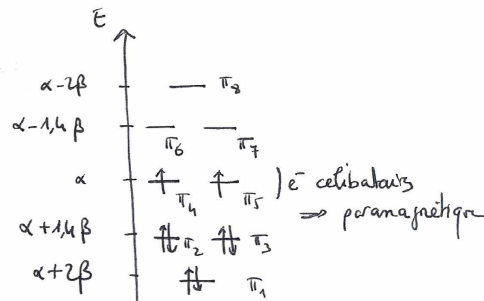 E
α-2β π8
α-1,4β π6 π7
α π4 π5 ) e⁻ célibataires
⇒ paramagnétique
α+1,4β π2 π3
α+2β π1